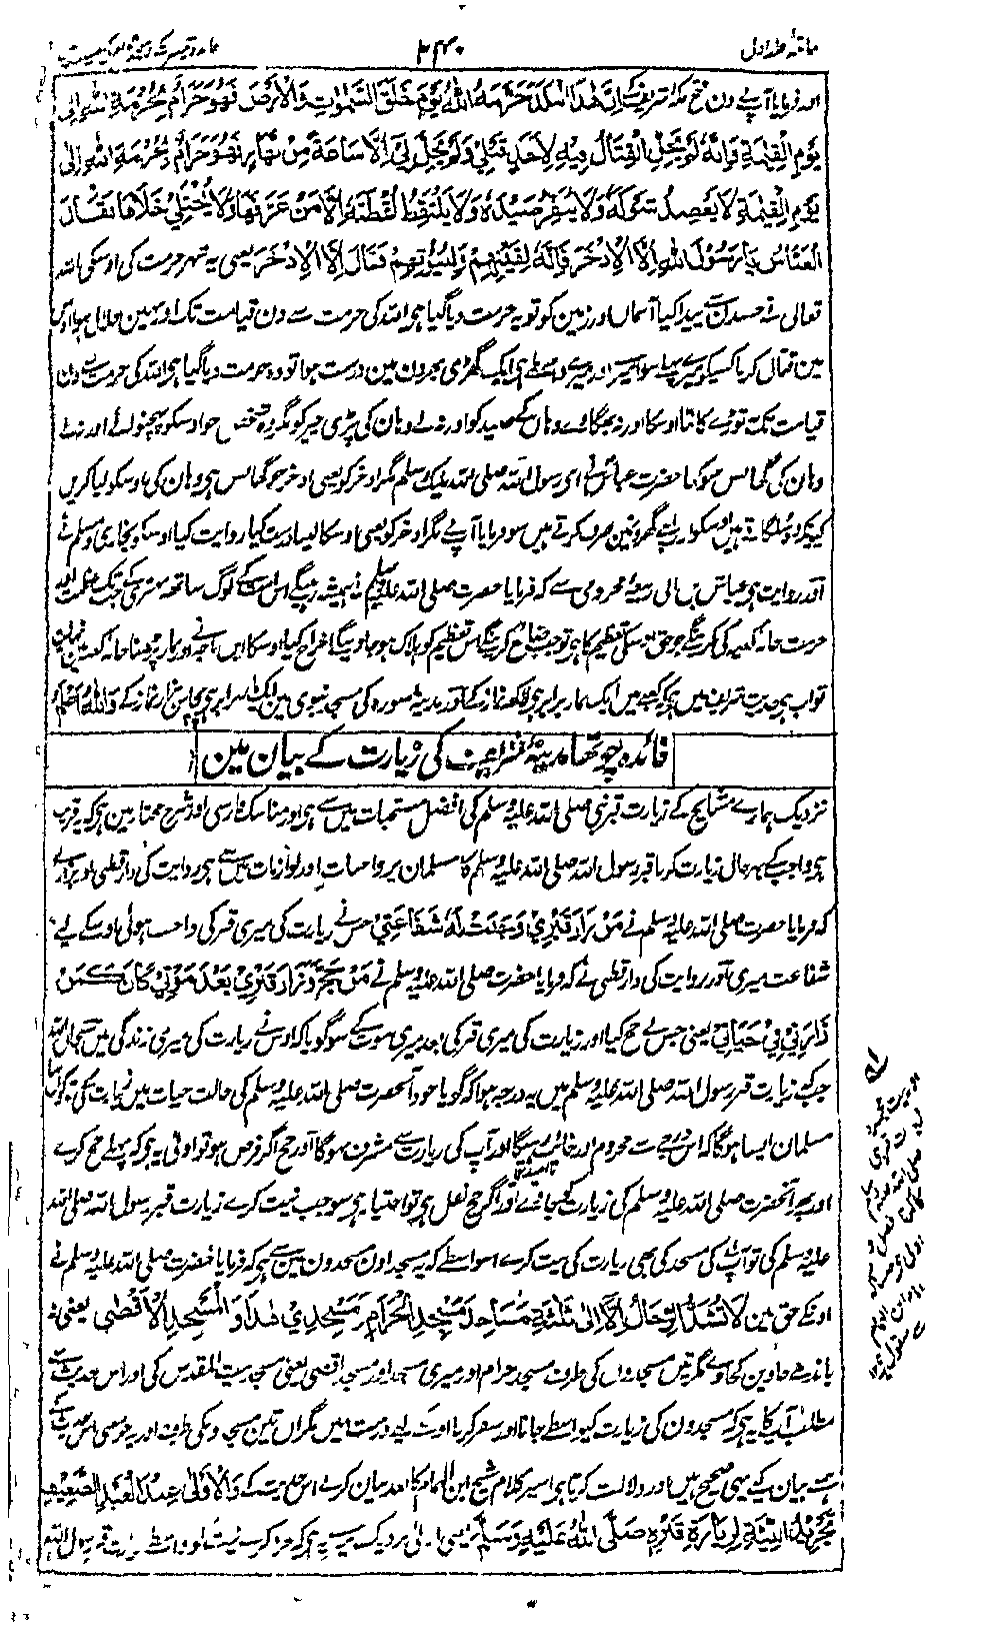 ۲۴۰
اور فرمایا آپ نے دن فتح مکہ شریف کے اِنَّ هٰذَا الْبَلَدَ حَرَّمَهُ اللهُ يَوْمَ خَلَقَ السَّمٰوٰتِ وَالْاَرْضَ فَهُوَ حَرَامٌ بِحُرْمَةِ اللهِ اِلٰى
يَوْمِ الْقِيٰمَةِ وَاِنَّهُ لَمْ يَحِلَّ الْقِتَالُ فِيْهِ لِاَحَدٍ قَبْلِيْ وَلَمْ يَحِلَّ لِيْ اِلَّا سَاعَةً مِنْ نَهَارٍ فَهُوَ حَرَامٌ بِحُرْمَةِ اللهِ اِلٰى
يَوْمِ الْقِيٰمَةِ لَا يُعْضَدُ شَوْكُهُ وَلَا يُنَفَّرُ صَيْدُهُ وَلَا يَلْتَقِطُ لُقْطَتَهُ اِلَّا مَنْ عَرَّفَهَا وَلَا يُخْتَلٰى خَلَاهَا فَقَالَ
الْعَبَّاسُ يَا رَسُوْلَ اللهِ اِلَّا الْاِذْخَرَ فَاِنَّهُ لِقَيْنِهِمْ وَلِبُيُوْتِهِمْ فَقَالَ اِلَّا الْاِذْخَرَ یعنی یہ شہر حرمت کی اوسکی اللہ
تعالی نے جسدن سے پیدا کیا آسمان اور زمین کو تو یہ حرمت دیا گیا ہی اللہ کی حرمت سے دن قیامت تک اور نہین حلال ہوا اس
مین قتال کرنا کسیکو میرے پہلے سوا میرے اور میرے واسطے بھی ایک گھڑی بھر دن مین درست ہوا تو وہ حرمت دیا گیا ہی اللہ کی حرمت سے دن
قیامت تک نہ توڑے کانٹا اوسکا اور نہ بھگاوے وہان کے صید کو اور نہ لے وہان کی پڑی چیز کو مگر وہ شخص جو اوسکو پہچنوائے اور نہ کٹے
وہان کی گھانس سو کہا حضرت عباس نے ای رسول اللہ صلی اللہ علیک وسلم مگر اذخر کو یعنی اذخر جو گھانس ہی وہان کی اوسکو لیا کریں
کیونکہ وہ سلگاتے ہیں اوسکو اور اپنے گھرون مین صرف کرتے ہیں سو فرمایا آپ نے مگر اذخر کو یعنی اوسکا لینا درست کیا روایت کیا اوسکو بخاری و مسلم نے
اور روایت ہی عیاش بن ابی ربیعہ مخزومی سے کہ فرمایا حضرت صلی اللہ علیہ وسلم نے ہمیشہ رہینگے اس امت کے لوگ ساتھہ بہتری کے جب تک عظمت اور
حرمت خانہ کعبہ کی کرینگے جو حق اوسکی تعظیم کا ہی تو جب ضایع کرینگے اس تعظیم کو ہلاک ہو جاوینگے اخراج کیا اوسکا ابن ماجہ اور نماز پڑھنا خانہ کعبہ مین
ثواب ہی حدیث شریف میں ہی کہ کعبہ میں ایک نماز برابر ہی لاکھہ نماز کے اور مدینہ منورہ کی مسجد نبوی مین ایک نماز برابر ہی پچاس ہزار نماز کے وَاللهُ اَعْلَمُ
فائدہ چوتھا مدینہ شریف کی زیارت کے بیان مین
نزدیک ہمارے مشایخ کے زیارت قبر نبی صلی اللہ علیہ وسلم کی افضل مستحبات میں سے ہی اور مناسک فارسی اور شرح مختار مین ہی کہ یہ قریب
ہی واجب کے بہر حال زیارت کرنا قبر رسول اللہ صلی اللہ علیہ وسلم کا مسلمان پر واجبات اور لوازمات مین سے ہی روایت کی دارقطنی اور بزار نے
کہ فرمایا حضرت صلی اللہ علیہ وسلم نے مَنْ زَارَ قَبْرِيْ وَجَبَتْ لَهُ شَفَاعَتِيْ جس نے زیارت کی میری قبر کی واجب ہوئی اوسکے لیے
شفاعت میری اور روایت کی دارقطنی نے کہ فرمایا حضرت صلی اللہ علیہ وسلم نے مَنْ حَجَّ وَزَارَ قَبْرِيْ بَعْدَ مَوْتِيْ كَانَ كَمَنْ
زَارَنِيْ فِيْ حَيَاتِيْ یعنی جس نے حج کیا اور زیارت کی میری قبر کی بعد میری موت کے سو گویا کہ اوس نے زیارت کی میری زندگی میں سبحان اللہ
جب کہ زیارت قبر رسول اللہ صلی اللہ علیہ وسلم میں یہ درجہ ہوا کہ گویا خود آنحضرت صلی اللہ علیہ وسلم کی حالت حیات میں زیارت کی تو کونسا
مسلمان ایسا ہوگا کہ اس درجے سے محروم اور خائب رہیگا اور آپ کی زیارت سے مشرف نہوگا اور حج اگر فرض ہو تو اولی یہ ہی کہ پہلے حج کرے
اور پھر آنحضرت صلی اللہ علیہ وسلم کی زیارت کو جاوے اور اگر حج نفل ہی تو اختیار ہی سو جب نیت کرے زیارت قبر رسول اللہ صلی اللہ
علیہ وسلم کی تو آپ کی مسجد کی بھی زیارت کی نیت کرے اسواسطے کہ یہ مسجد اون مسجدون مین سے ہی کہ فرمایا حضرت صلی اللہ علیہ وسلم نے
اونکے حق مین لَا تُشَدُّ الرِّحَالُ اِلَّا اِلٰى ثَلٰثَةِ مَسَاجِدَ مَسْجِدِ الْحَرَامِ وَمَسْجِدِيْ هٰذَا وَالْمَسْجِدِ الْاَقْصٰى یعنی نہ
باندھے جاوین کجاوے مگر تین مسجدوں کی طرف مسجد حرام اور میری مسجد اور مسجد اقصی یعنی مسجد بیت المقدس کی اور اس حدیث سے
مطلب آپ کا یہ ہی کہ مسجدون کی زیارت کیواسطے جانا اور سفر کرنا درست نہیں مگر ان تین مسجدونکی طرف
بیان کیے یہی صحیح ہیں اور دلالت کرتا ہی اسپر کلام شیخ ابن الہمام کا بعد بیان کرنے اس حدیث کے وَالْاَوْلٰى عِنْدَ الْعَبْدِ الضَّعِيْفِ
تَجْرِيْدُ النِّيَّةِ لِزِيَارَةِ قَبْرِهٖ صَلَّى اللهُ عَلَيْهِ وَسَلَّمَ یعنی اولی نزدیک میرے یہ ہی کہ مجرد کرے نیت کو واسطے زیارت قبر رسول اللہ